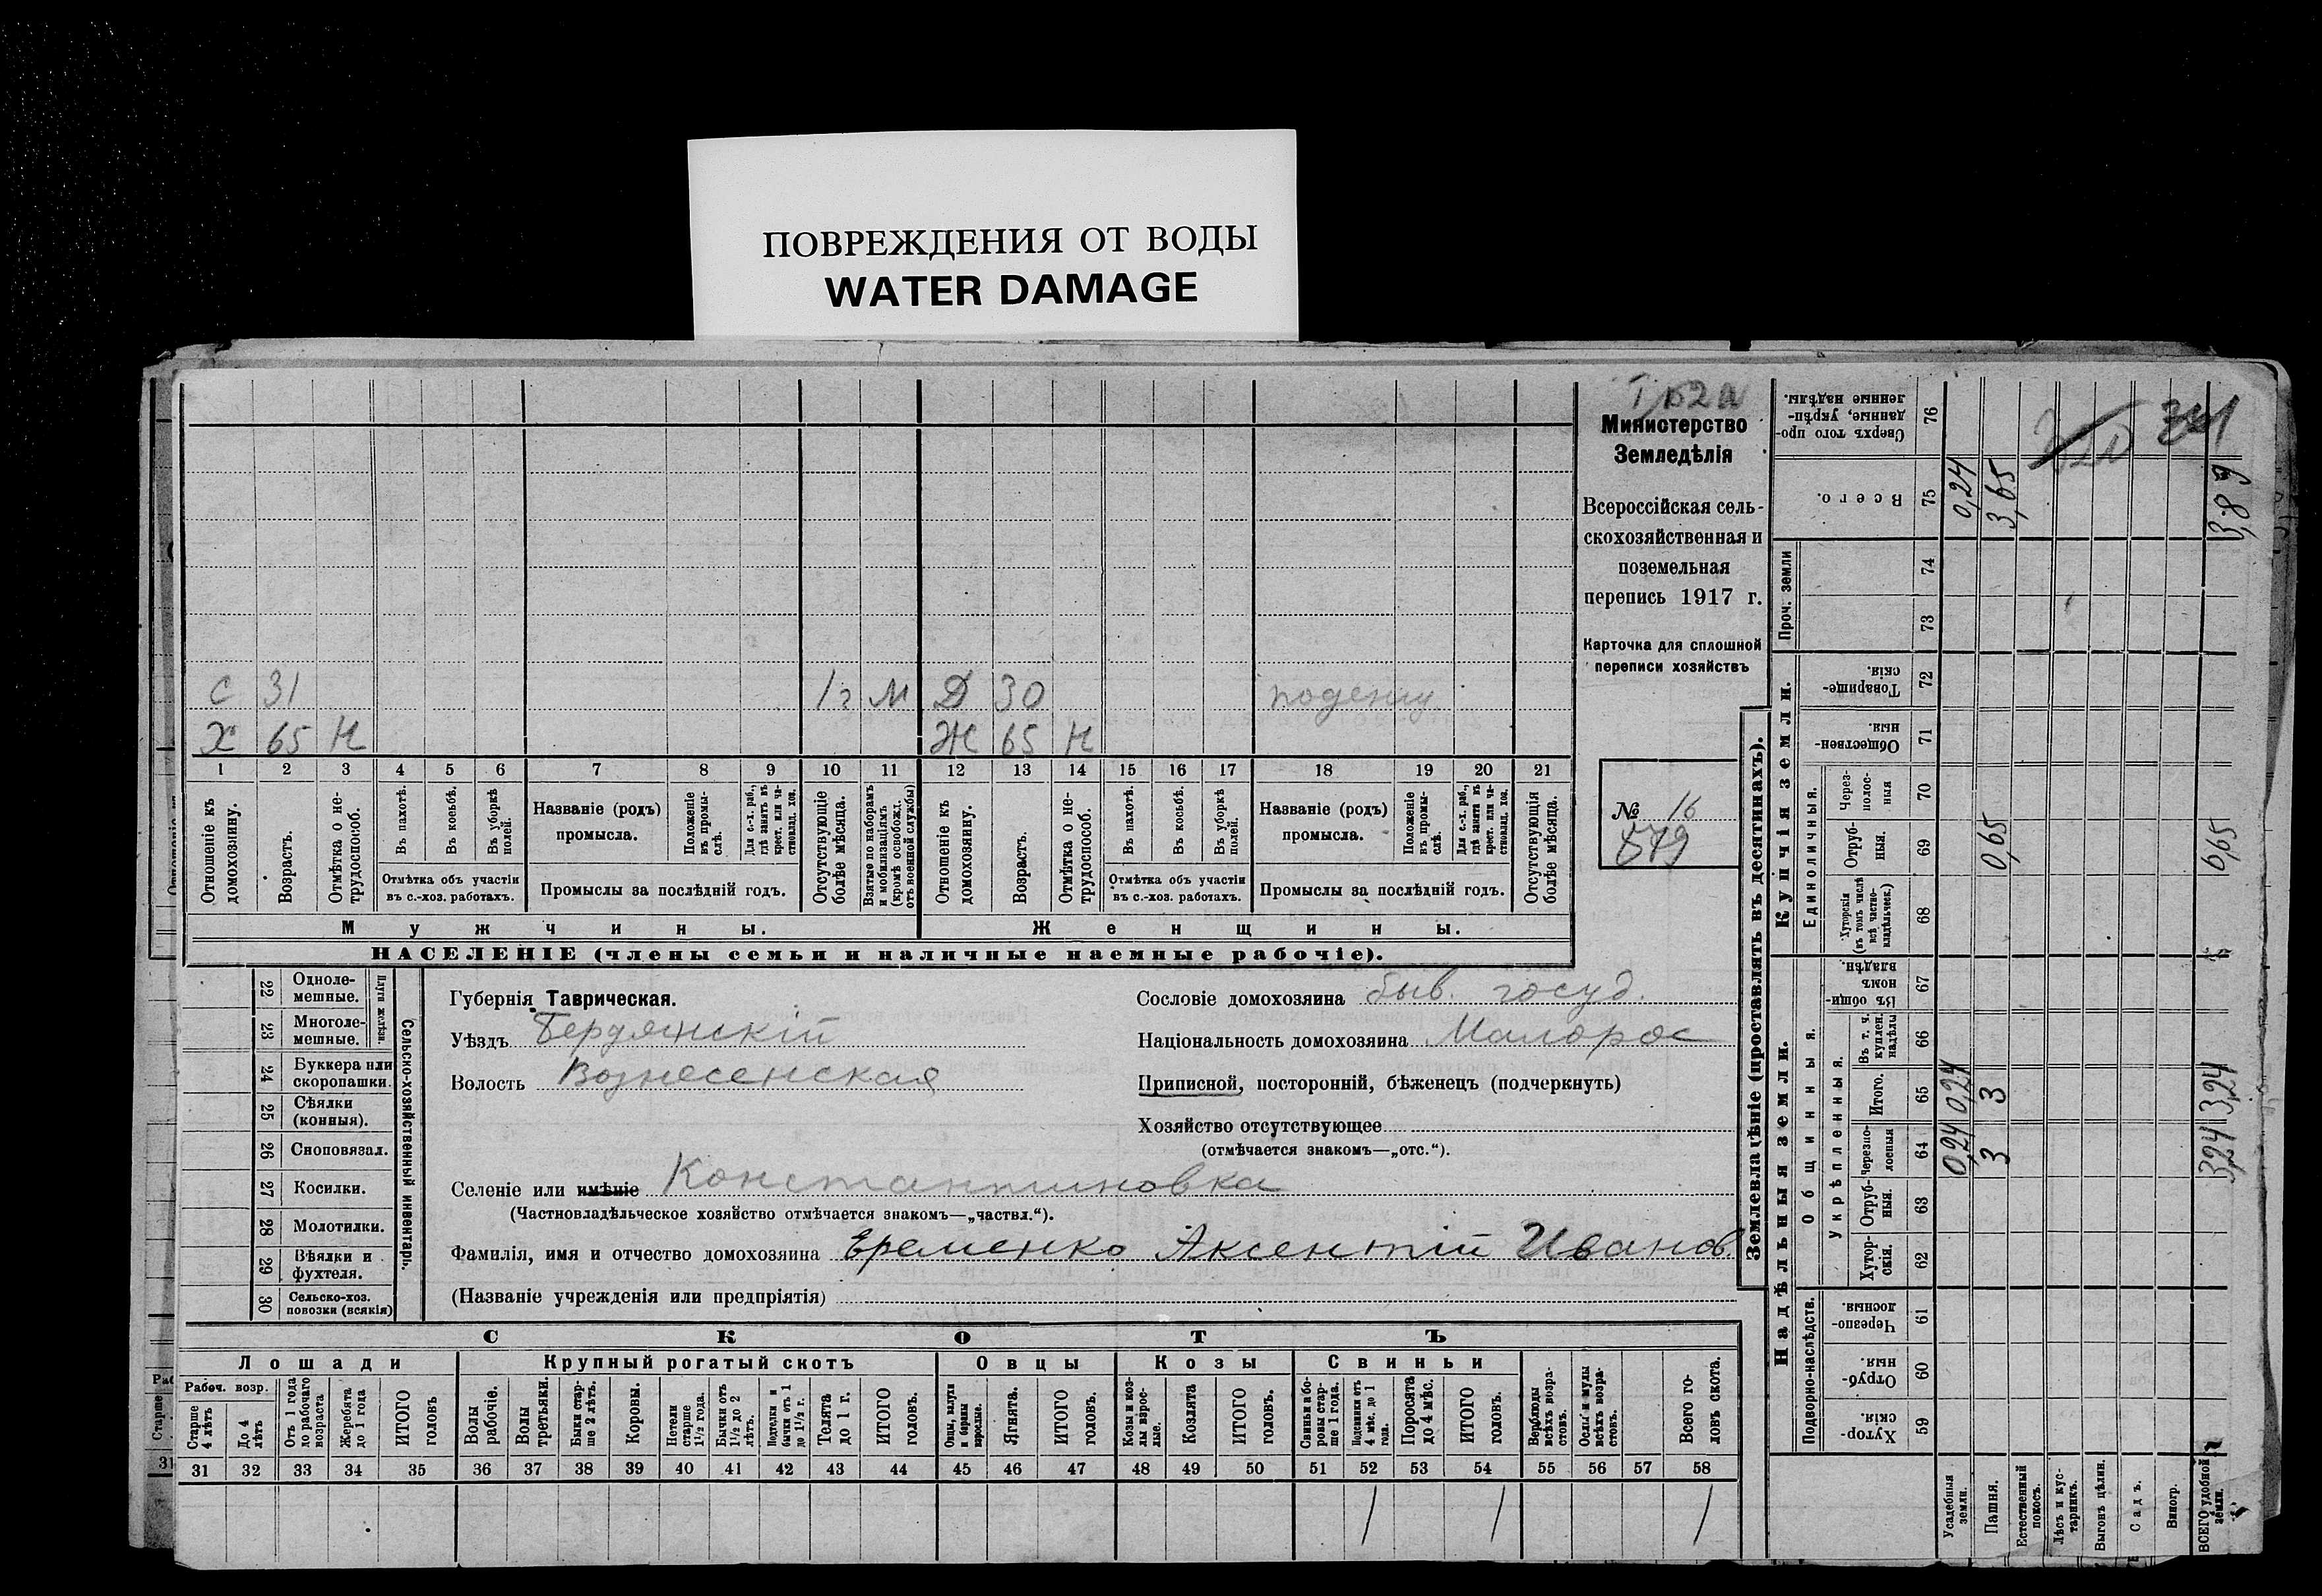 ПОВРЕЖДЕНИЯ ОТ ВОДЫ
WATER DAMAGE
Министерство
Земледѣлія
Всероссійская сель-
скохозяйственная и
поземельная
перепись 1917 г.
Карточка для сплошной
переписи хозяйствъ
№ 16
879
С 31 1г М Д 30 поденщ.
Х 65 Н Ж 65 Н
1 2 3 4 5 6 7 8 9 10 11 12 13 14 15 16 17 18 19 20 21
Отношеніе къ домохозяину.
Возрастъ.
Отмѣтка о не-трудоспособ.
Въ пахотѣ.
Въ косьбѣ.
Въ уборкѣ полей.
Отмѣтка объ участіи
въ с.-хоз. работахъ.
Названіе (родъ)
промысла.
Положеніе въ промы-слѣ.
Для с.-х. раб., гдѣ занятъ въ крест. или ча-стновлад. хоз.
Промыслы за послѣдній годъ.
Отсутствующіе болѣе мѣсяца.
Взятые по наборамъ и мобилизаціямъ (кромѣ освобожд. отъ военной службы)
Отношеніе къ домохозяину.
Возрастъ.
Отмѣтка о не-трудоспособ.
Въ пахотѣ.
Въ косьбѣ.
Въ уборкѣ полей.
Отмѣтка объ участіи
въ с.-хоз. работахъ.
Названіе (родъ)
промысла.
Положеніе въ промы-слѣ.
Для с.-х. раб., гдѣ занята въ крест. или ча-стновлад. хоз.
Промыслы за послѣдній годъ.
Отсутствующія болѣе мѣсяца.
Мужчины. Женщины.
НАСЕЛЕНІЕ (члены семьи и наличные наемные рабочіе).
22 Одноле-
мешные.
23 Многоле-
мешные.
Плуги желѣзн.
24 Буккера или
скоропашки.
25 Сѣялки
(конныя).
26 Сноповязал.
27 Косилки.
28 Молотилки.
29 Вѣялки и
фухтеля.
30 Сельско-хоз.
повозки (всякія)
Сельско-хозяйственный инвентарь.
Губернія Таврическая.
Уѣздъ Бердянскій
Волость Вознесенская
Сословіе домохозяина Быв. госуд.
Національность домохозяина Малорос
Приписной, посторонній, бѣженецъ (подчеркнуть)
Хозяйство отсутствующее
(отмѣчается знакомъ—„отс.“).
Селеніе или имѣніе Константиновка
(Частновладѣльческое хозяйство отмѣчается знакомъ—„частвл.“).
Фамилія, имя и отчество домохозяина Еременко Аксентій Иванов
(Названіе учрежденія или предпріятія)
СКОТЪ
Лошади Крупный рогатый скотъ Овцы Козы Свиньи
Рабоч. возр.
Старше 4 лѣтъ
До 4 лѣтъ
Отъ 1 года до рабочаго возраста
Жеребята до 1 года
ИТОГО головъ
Волы рабочіе.
Волы третьяки.
Быки стар-ше 2 лѣтъ.
Коровы.
Нетели старше 1½ года.
Бычки отъ 1½ до 2 лѣтъ.
Подтелки и бычки отъ 1 до 1½ г.
Телята до 1 г.
ИТОГО головъ.
Овцы, валухи и бараны взрослые.
Ягнята.
ИТОГО головъ.
Козы и коз-лы взрос-лые.
Козлята
ИТОГО головъ.
Свиньи и бо-ровы стар-ше 1 года.
Подсвинки отъ 4 мѣс. до 1 года.
Поросята до 4 мѣс.
ИТОГО головъ.
Верблюды всѣхъ возра-стовъ.
Ослы и мулы всѣхъ возра-стовъ.
Всего го-ловъ скота.
31 32 33 34 35 36 37 38 39 40 41 42 43 44 45 46 47 48 49 50 51 52 53 54 55 56 57 58
1 1 1
Землевладѣніе (проставлять въ десятинахъ).
Надѣльныя земли. Купчія земли. Проч. земли
Подворно-наслѣдств. Общинныя. Единоличныя.
Укрѣпленныя.
Хутор-скія. 59
Отруб-ныя. 60
Черезпо-лосныя. 61
Хутор-скія. 62
Отруб-ныя. 63
Черезпо-лосныя 64
Итого. 65
Въ т. ч. куплен. надѣлы 66
Въ общи-номъ владѣн. 67
Хуторскія (въ томъ числѣ всѣ частно-владѣльческ.) 68
Отруб-ныя. 69
Через-полос-ныя 70
Обществен-ныя. 71
Товарище-скія. 72
73
74
Всего. 75
Сверхъ того про-данные, укрѣп-ленные надѣлы. 76
Усадебныя земли. 0,24 0,24 0,24
Пашня. 3 3 0,65 3,65
Естественный покосъ.
Лѣсъ и кус-тарникъ.
Выгонъ цѣлин.
Садъ.
Виногр.
ВСЕГО удобной земли. 3,24 3,24 0,65 3,89